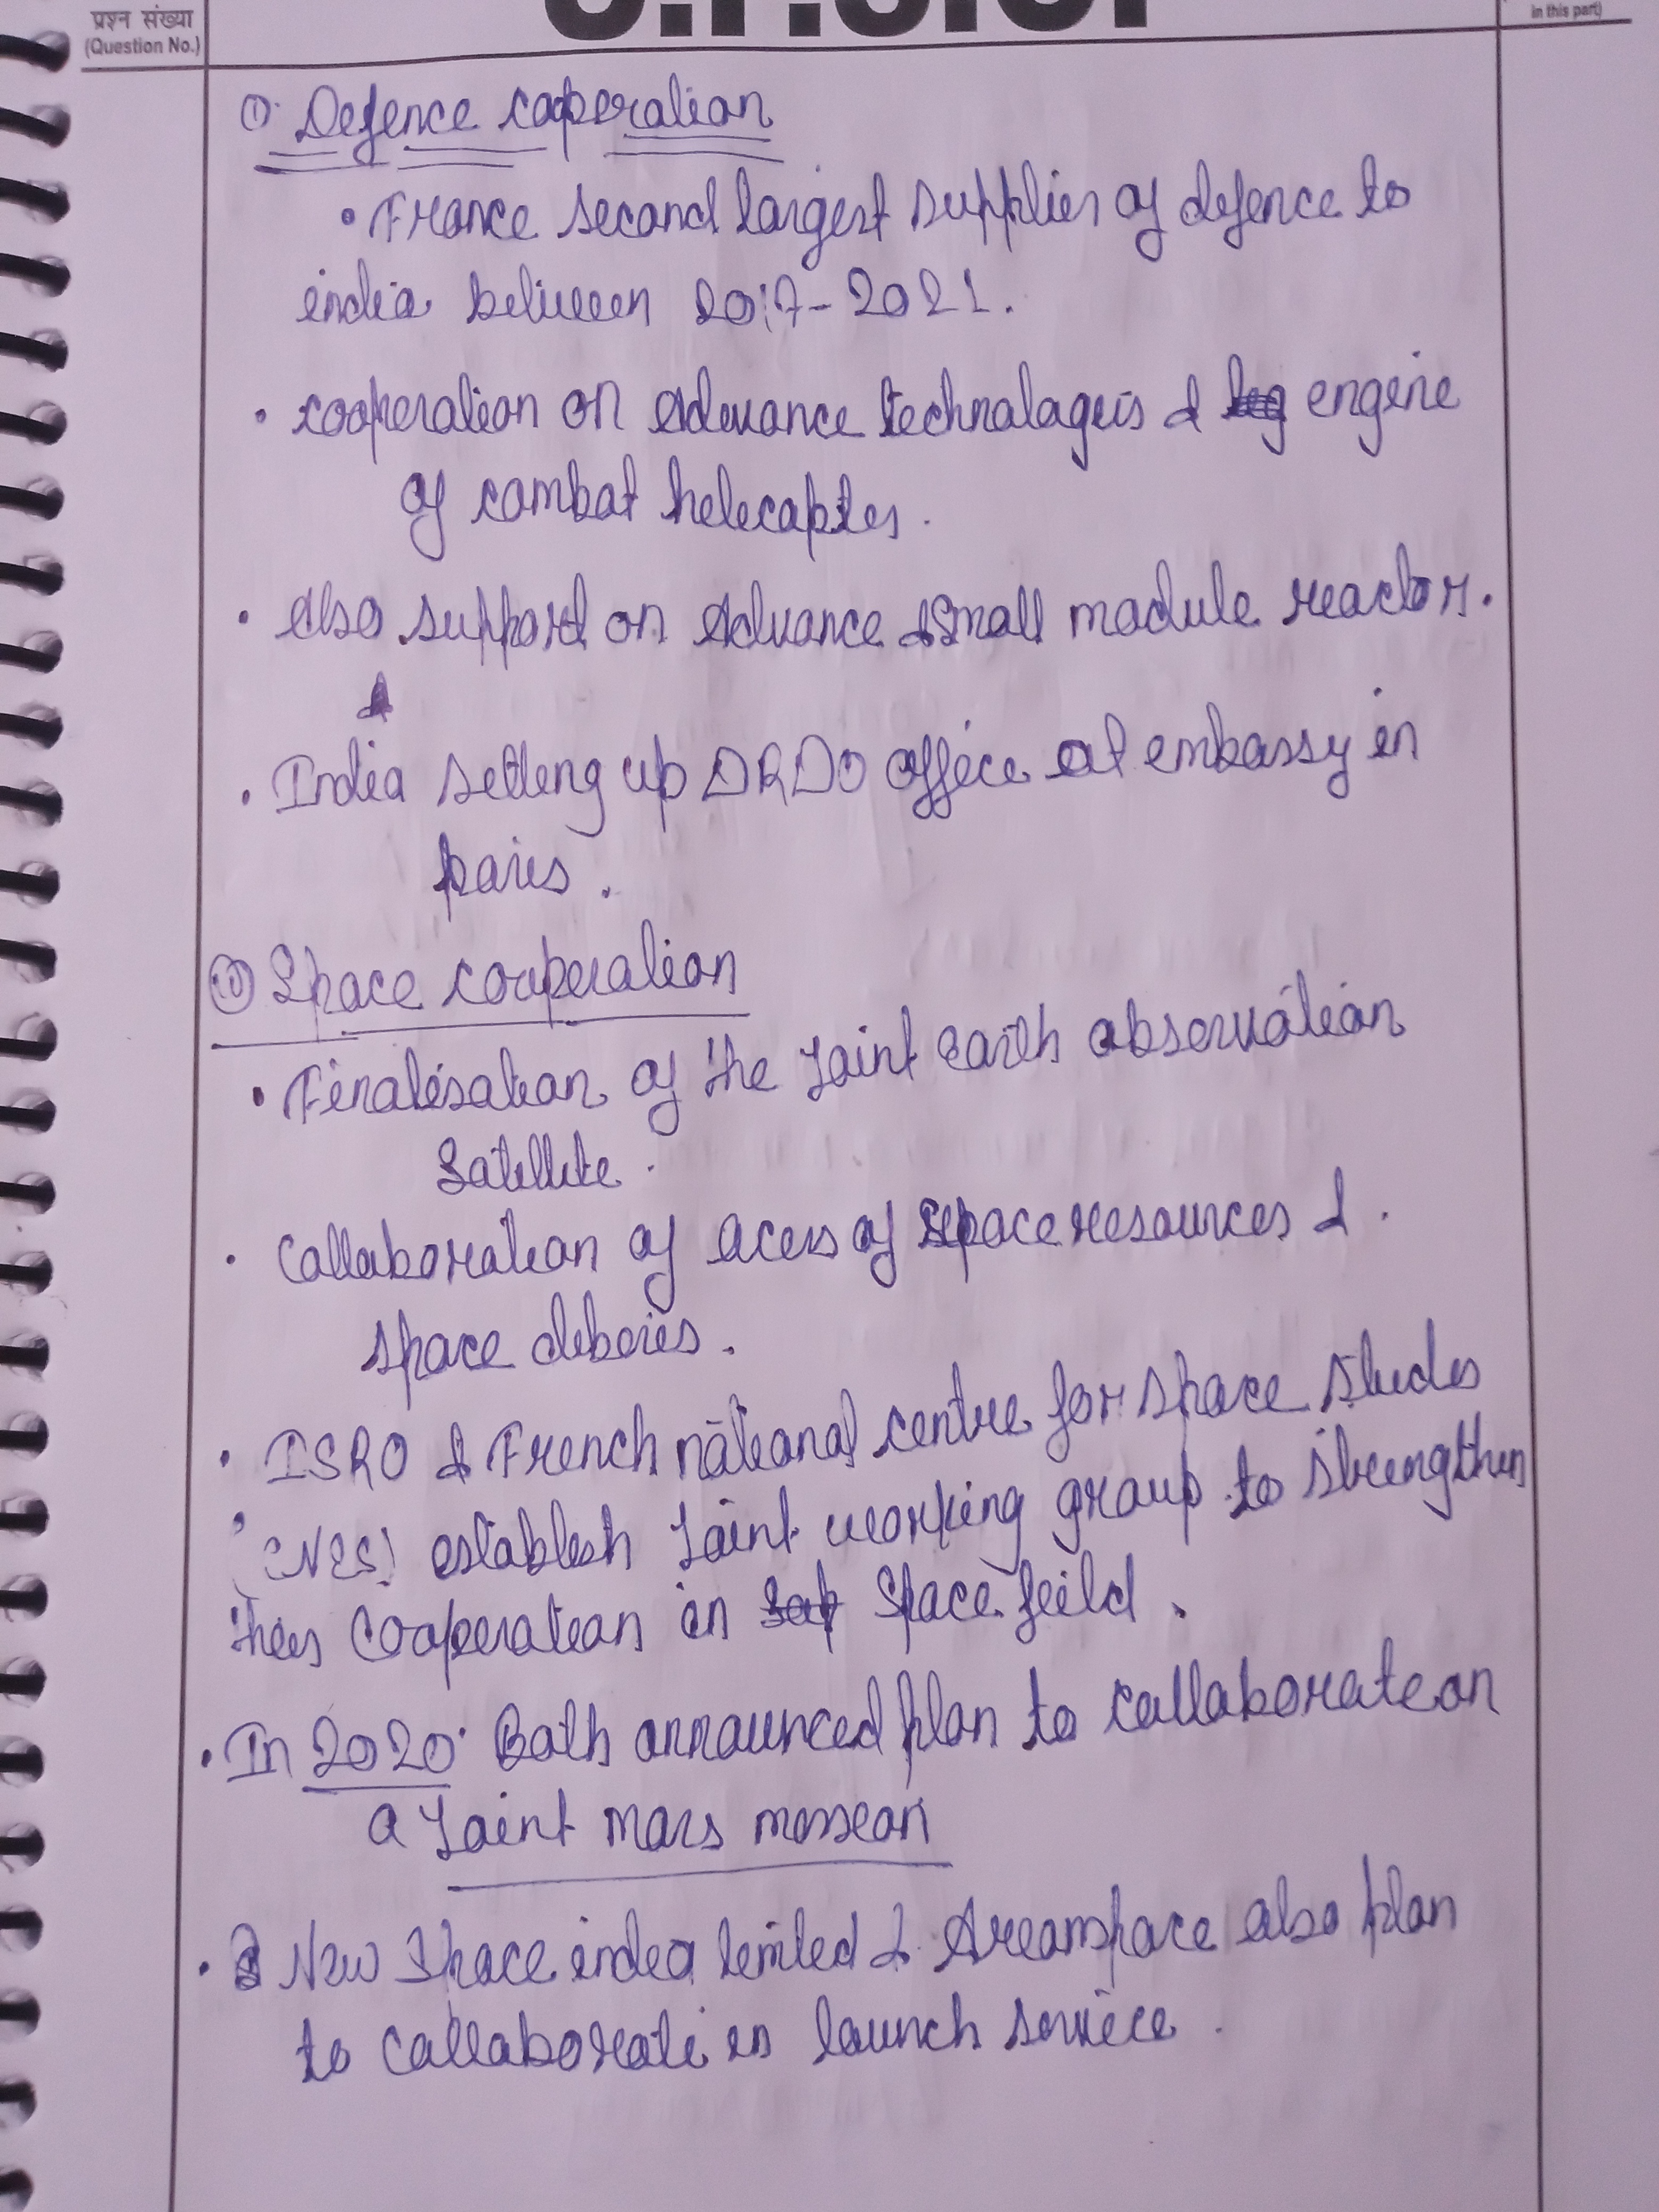 प्रश्न संख्या
(Question No.)
U.P.S.C.
in this part)
① Defence cooperation
• France second largest supplier of defence to
india between 2017-2021.
• cooperation on Advance technologies & engine
of combat helecopter.
• also support on Advance & small module reactor.
• India setting up DRDO office at embassy in
paris.
② Space cooperation
• Finalisation of the Joint earth observation
Satellite.
• Collaboration of acess of space resources &
space deberies.
• ISRO & French national centre for space studes
(CNES) establish Joint working group to strengthen
their Cooperation in Space feild.
• In 2020 Both announced plan to collaborate on
a Joint mars mission
• New Space india limited & Areanspace also plan
to collaborate in launch service.